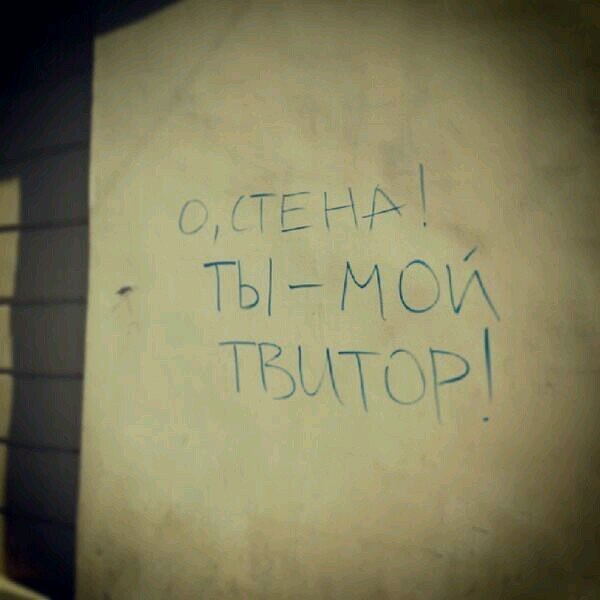 О, СТЕНА!
ТЫ – МОЙ
ТВИТОР!